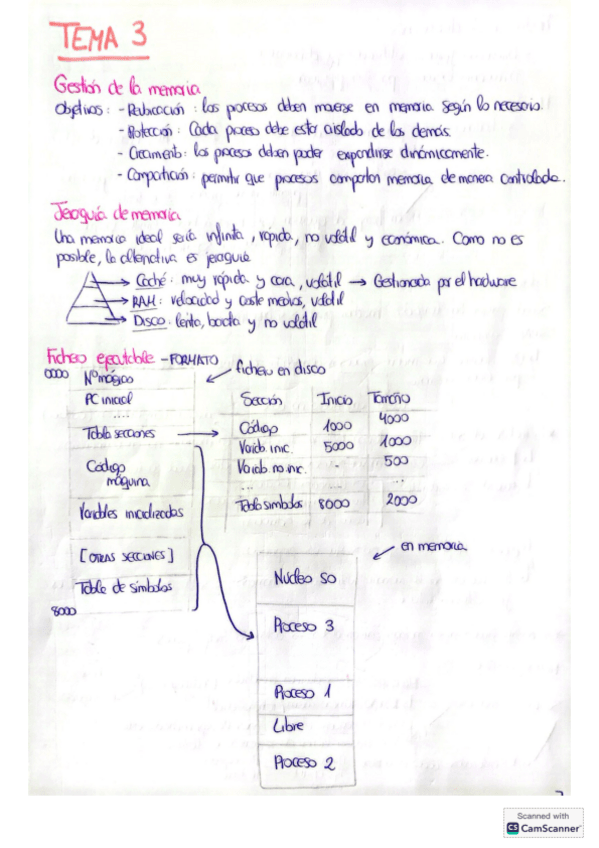 TEMA 3
Gestión de la memoria
Objetivos: - Reubicación: los procesos deben moverse en memoria según lo necesario.
- Protección: Cada proceso debe estar aislado de los demás.
- Crecimiento: los procesos deben poder expandirse dinámicamente.
- Compartición: permitir que procesos compartan memoria de manera controlada.
Jerarquía de memoria
Una memoria ideal sería infinita, rápida, no volátil y económica. Como no es
posible, la alternativa es jerarquía
→ Caché: muy rápida y cara, volátil → Gestionada por el hardware
→ RAM: velocidad y coste medios, volátil
→ Disco: lento, barato y no volátil
Fichero ejecutable - FORMATO
fichero en disco
0000 Nº mágico
PC inicial
....
Tabla secciones →
Código
máquina
Variables inicializadas
[OTRAS SECCIONES]
Tabla de símbolos
8000
Sección Inicio Tamaño
Código 1000 4000
Variab. inic. 5000 1000
Variab. no inic. - 500
... ... ...
Tabla símbolos 8000 2000
en memoria
Núcleo SO
Proceso 3
Proceso 1
Libre
Proceso 2
Scanned with
CS CamScanner